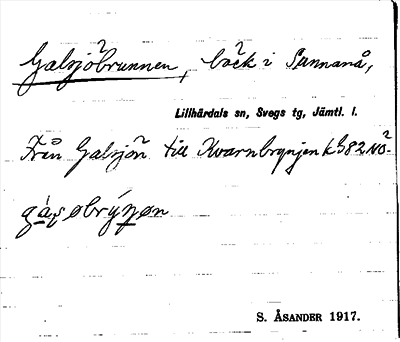 Galsjöbrunnen, bäck i Sunnanå,
Lillhärdals sn, Svegs tg, Jämtl. l.
Från Galsjön till Kvarnbrynjen k 382 NO.
S. ÅSANDER 1917.